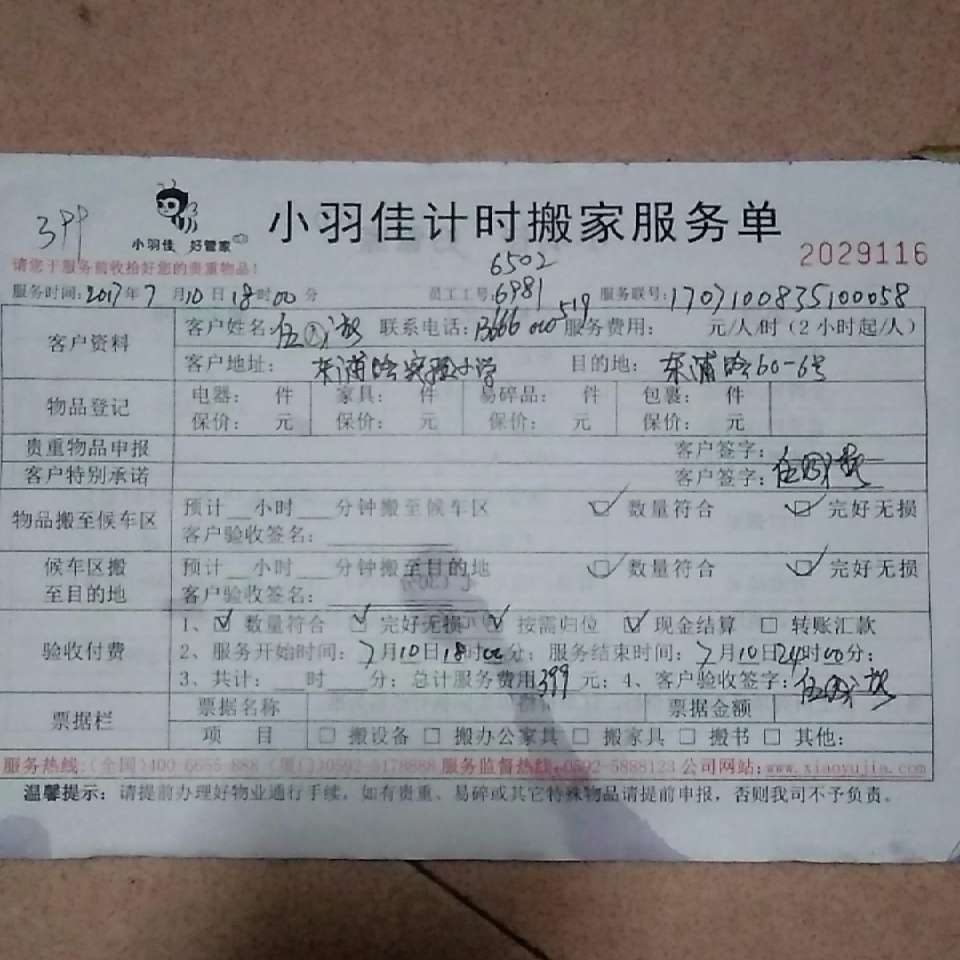 399
小羽佳 好管家
小羽佳计时搬家服务单
2029116
请您于服务前收拾好您的贵重物品!
6502
服务时间:2017年7月10日18时00分 员工工号:6981 服务联号:1707100835100058
客户资料 客户姓名:伍 联系电话:13666 519 服务费用: 元/人/时(2小时起/人)
客户地址: 东浦路实验小学 目的地: 东浦路60-6号
物品登记 电器: 件 家具: 件 易碎品: 件 包裹: 件
保价: 元 保价: 元 保价: 元 保价: 元
贵重物品申报 客户签字:
客户特别承诺 客户签字:伍
物品搬至候车区 预计__小时___分钟搬至候车区 数量符合 完好无损
客户验收签名:
候车区搬至目的地 预计__小时___分钟搬至目的地 数量符合 完好无损
客户验收签名:
验收付费 1、☑ 数量符合 ☑ 完好无损 ☑ 按需归位 ☑ 现金结算 □ 转账汇款
2、服务开始时间:7月10日18时00分;服务结束时间:7月10日24时00分;
3、共计:___时___分;总计服务费用399元;4、客户验收签字:伍
票据栏 票据名称 票据金额
项 目 □ 搬设备 □ 搬办公家具 □ 搬家具 □ 搬书 □ 其他:
服务热线:(全国)400-6655-888 (厦门)0592-5178888 服务监督热线:0592-5888123 公司网站:www.xiaoyujia.com
温馨提示:请提前办理好物业通行手续,如有贵重、易碎或其它特殊物品请提前申报,否则我司不予负责。